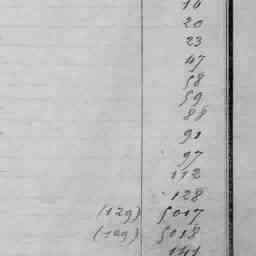 16
20
23
47
58
59
88
91
97
112
128
(129) 5017
(129) 5018
141